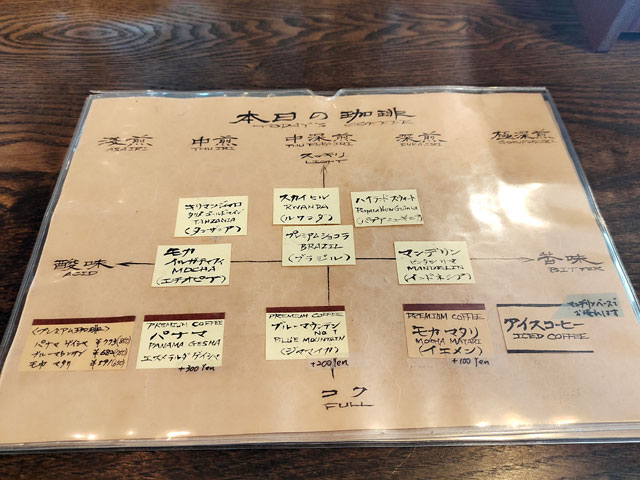 本日の珈琲
TODAY'S COFFEE
浅煎 中煎 中深煎 深煎 極深煎
ASAIRI
スッキリ
LIGHT
キリマンジャロ
TANZANIA
(タンザニア)
スカイヒル
RWANDA
(ルワンダ)
PAPUA NEW GUINEA
(パプアニューギニア)
プレミアムショコラ
BRAZIL
(ブラジル)
酸味
ACID
モカ
MOCHA
(エチオピア)
マンデリン
MANDELIN
(インドネシア)
苦味
BITTER
〈プレミアム珈琲〉
パナマ ゲイシャ
ブルーマウンテン
モカ マタリ
PREMIUM COFFEE
パナマ
PANAMA GEISHA
エスメラルダ ゲイシャ
+300 Yen
PREMIUM COFFEE
ブルーマウンテン
NO 1
BLUE MOUNTAIN
(ジャマイカ)
+200 Yen
PREMIUM COFFEE
モカ マタリ
MOCHA MATARI
(イエメン)
+100 Yen
マンデリンベースで
アイスコーヒー
ICED COFFEE
コク
FULL